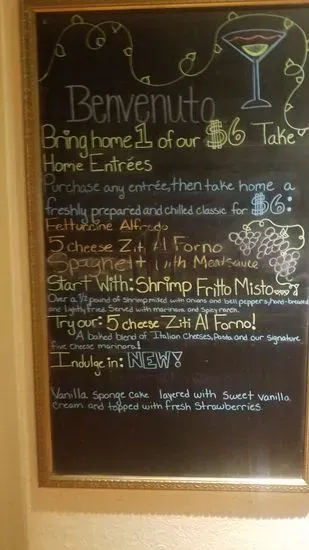 Benvenuto
Bring home 1 of our $6 Take
Home Entrées
Purchase any entrée, then take home a
freshly prepared and chilled classic for $6:
Fettuccine Alfredo
5 cheese Ziti Al Forno
Spaghetti with Meatsauce
Start With: Shrimp Fritto Misto
Over a 1/2 pound of Shrimp mixed with onions and bell peppers, hand-breaded
and lightly fried. Served with marinara and spicy ranch.
Try our: 5 cheese Ziti Al Forno!
A baked blend of Italian Cheeses, Pasta and our signature
five cheese marinara!
Indulge in: NEW!
Vanilla sponge cake layered with sweet vanilla
cream and topped with fresh Strawberries.